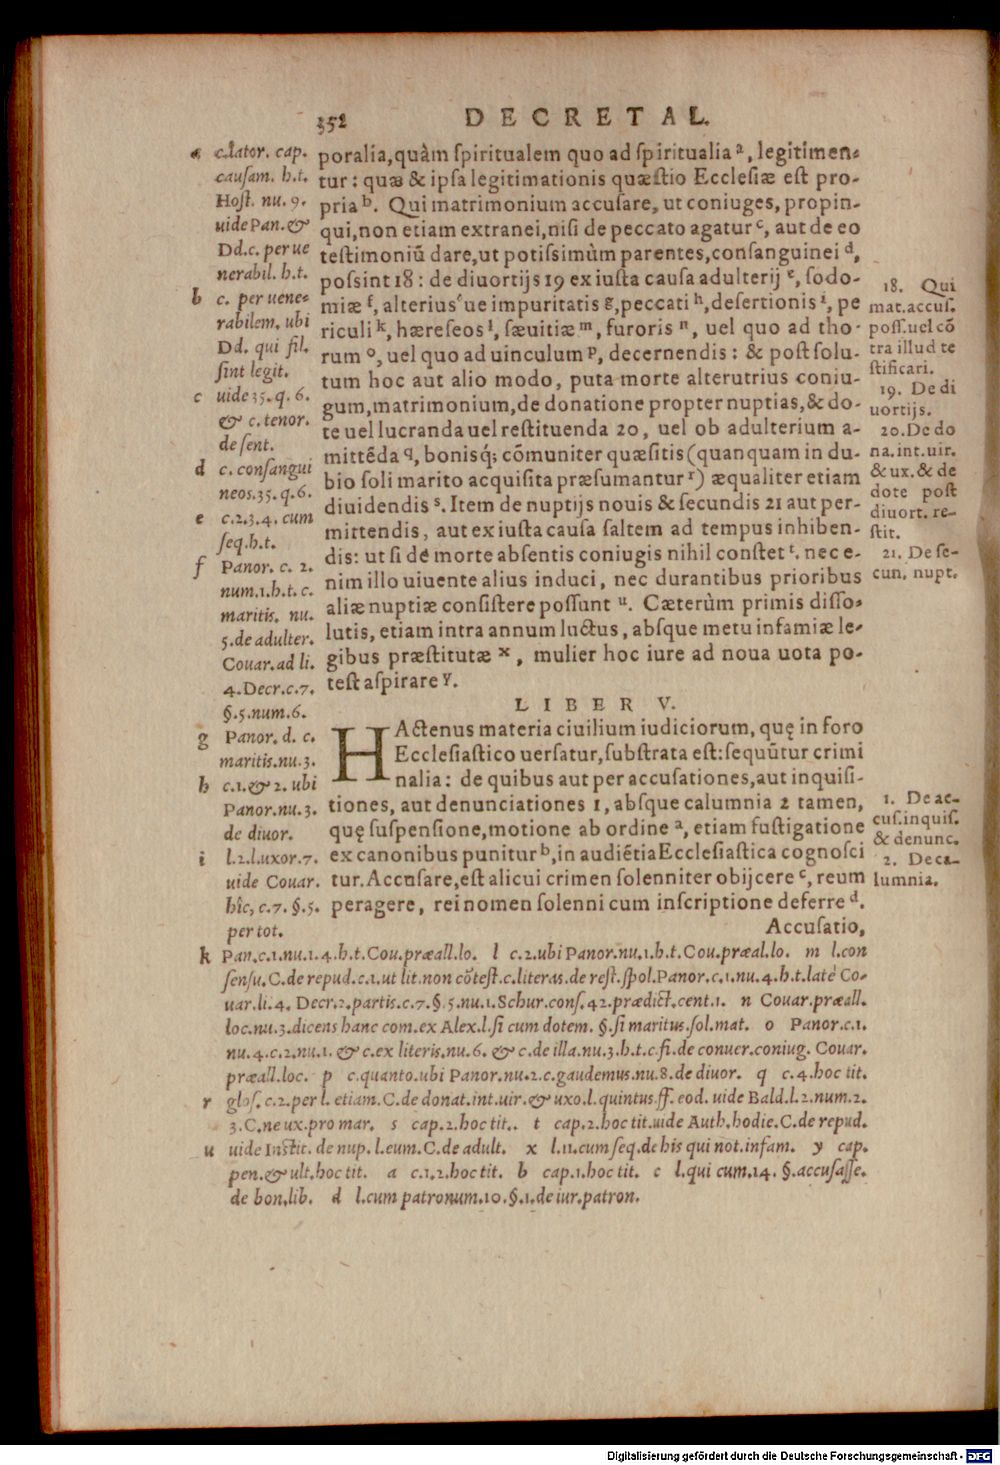 352 DECRETAL.
poralia,quàm ſpiritualem quo ad ſpiritualia ᵃ, legitimen-
tur: quæ & ipſa legitimationis quæſtio Eccleſiæ eſt pro-
pria ᵇ. Qui matrimonium accuſare, ut coniuges, propin-
qui,non etiam extranei,niſi de peccato agatur ᶜ, aut de eo
teſtimoniũ dare,ut potiſsimùm parentes,conſanguinei ᵈ,
poſsint 18: de diuortijs 19 ex iuſta cauſa adulterij ᵉ, ſodo-
miæ ᶠ, alterius'ue impuritatis ᵍ,peccati ʰ,deſertionis ⁱ, pe
riculi ᵏ, hæreſeos ˡ, ſæuitiæ ᵐ, furoris ⁿ, uel quo ad tho-
rum ᵒ, uel quo ad uinculum ᵖ, decernendis: & poſt ſolu-
tum hoc aut alio modo, puta morte alterutrius coniu-
gum,matrimonium,de donatione propter nuptias,& do-
te uel lucranda uel reſtituenda 20, uel ob adulterium a-
mittẽda q, bonisq́; cõmuniter quæſitis (quanquam in du-
bio ſoli marito acquiſita præſumantur ʳ) æqualiter etiam
diuidendis ˢ. Item de nuptijs nouis & ſecundis 21 aut per-
mittendis, aut ex iuſta cauſa ſaltem ad tempus inhiben-
dis: ut ſi de morte abſentis coniugis nihil conſtet ᵗ. nec e-
nim illo uiuente alius induci, nec durantibus prioribus
aliæ nuptiæ conſiſtere poſſunt ᵘ. Cæterùm primis diſſo-
lutis, etiam intra annum luctus, abſque metu infamiæ le-
gibus præſtitutæ ˣ, mulier hoc iure ad noua uota po-
teſt aſpirare ʸ.
LIBER V.
HActenus materia ciuilium iudiciorum, quę in foro
Eccleſiaſtico uerſatur,ſubſtrata eſt:ſequũtur crimi
nalia: de quibus aut per accuſationes,aut inquiſi-
tiones, aut denunciationes 1, abſque calumnia 2 tamen,
quę ſuſpenſione,motione ab ordine ᵃ, etiam fuſtigatione
ex canonibus punitur ᵇ,in audiẽtia Eccleſiaſtica cognoſci
tur. Accuſare,eſt alicui crimen ſolenniter obijcere ᶜ, reum
peragere, rei nomen ſolenni cum inſcriptione deferre ᵈ.
Accuſatio,
a c.lator. cap.
cauſam. h.t.
Hoſt. nu. 9.
uide Pan. &
Dd.c. per ue
nerabil. h.t.
b c. per uene-
rabilem. ubi
Dd. qui fil.
ſint legit.
c uide 35. q. 6.
& c. tenor.
de ſent.
d c. conſangui
neos.35. q.6.
e c.2.3.4. cum
ſeq.h.t.
f Panor. c. 2.
num.1.h.t. c.
maritis. nu.
5.de adulter.
Couar.ad li.
4.Decr.c.7.
§.5.num.6.
g Panor. d. c.
maritis.nu.3.
h c.1.& 2. ubi
Panor.nu.3.
de diuor.
i l.2.l.uxor.7.
uide Couar.
hîc, c.7. §.5.
per tot.
18. Qui
mat.accuſ.
poſſ.uel cõ
tra illud te
ſtificari.
19. De di
uortijs.
20.De do
na.int.uir.
& ux. & de
dote poſt
diuort. re-
ſtit.
21. De ſe-
cun. nupt.
1. De ac-
cuſ.inquiſ.
& denunc.
2. De ca-
lumnia.
k Pan.c.1.nu.1.4.h.t.Cou.præall.lo. l c.2.ubi Panor.nu.1.h.t.Cou.præal.lo. m l.con
ſenſu.C.de repud.c.1.ut lit.non cõteſt.c.literas.de reſt.ſpol.Panor.c.1.nu.4.h.t.latè Co-
uar.li.4. Decr.2.partis.c.7.§.5.nu.1.Schur.conſ.42.prædict.cent.1. n Couar.præall.
loc.nu.3.dicens hanc com.ex Alex.l.ſi cum dotem. §.ſi maritus.ſol.mat. o Panor.c.1.
nu.4.c.2.nu.1. & c.ex literis.nu.6. & c.de illa.nu.3.h.t.c.fi.de conuer.coniug. Couar.
præall.loc. p c.quanto.ubi Panor.nu.2.c.gaudemus.nu.8.de diuor. q c.4.hoc tit.
r gloſ.c.2.per l. etiam.C.de donat.int.uir.& uxo.l.quintus.ff. eod. uide Bald.l.2.num.2.
3.C.ne ux.pro mar. s cap.2.hoc tit.. t cap.2.hoc tit.uide Auth.hodie.C.de repud.
u uide Inſtit. de nup. l.eum.C.de adult. x l.11.cum ſeq.de his qui not.infam. y cap.
pen.& ult.hoc tit. a c.1.2.hoc tit. b cap.1.hoc tit. c l.qui cum.14. §.accuſaſſe.
de bon.lib. d l.cum patronum.10.§.1.de iur.patron.
Digitalisierung gefördert durch die Deutsche Forschungsgemeinschaft - DFG